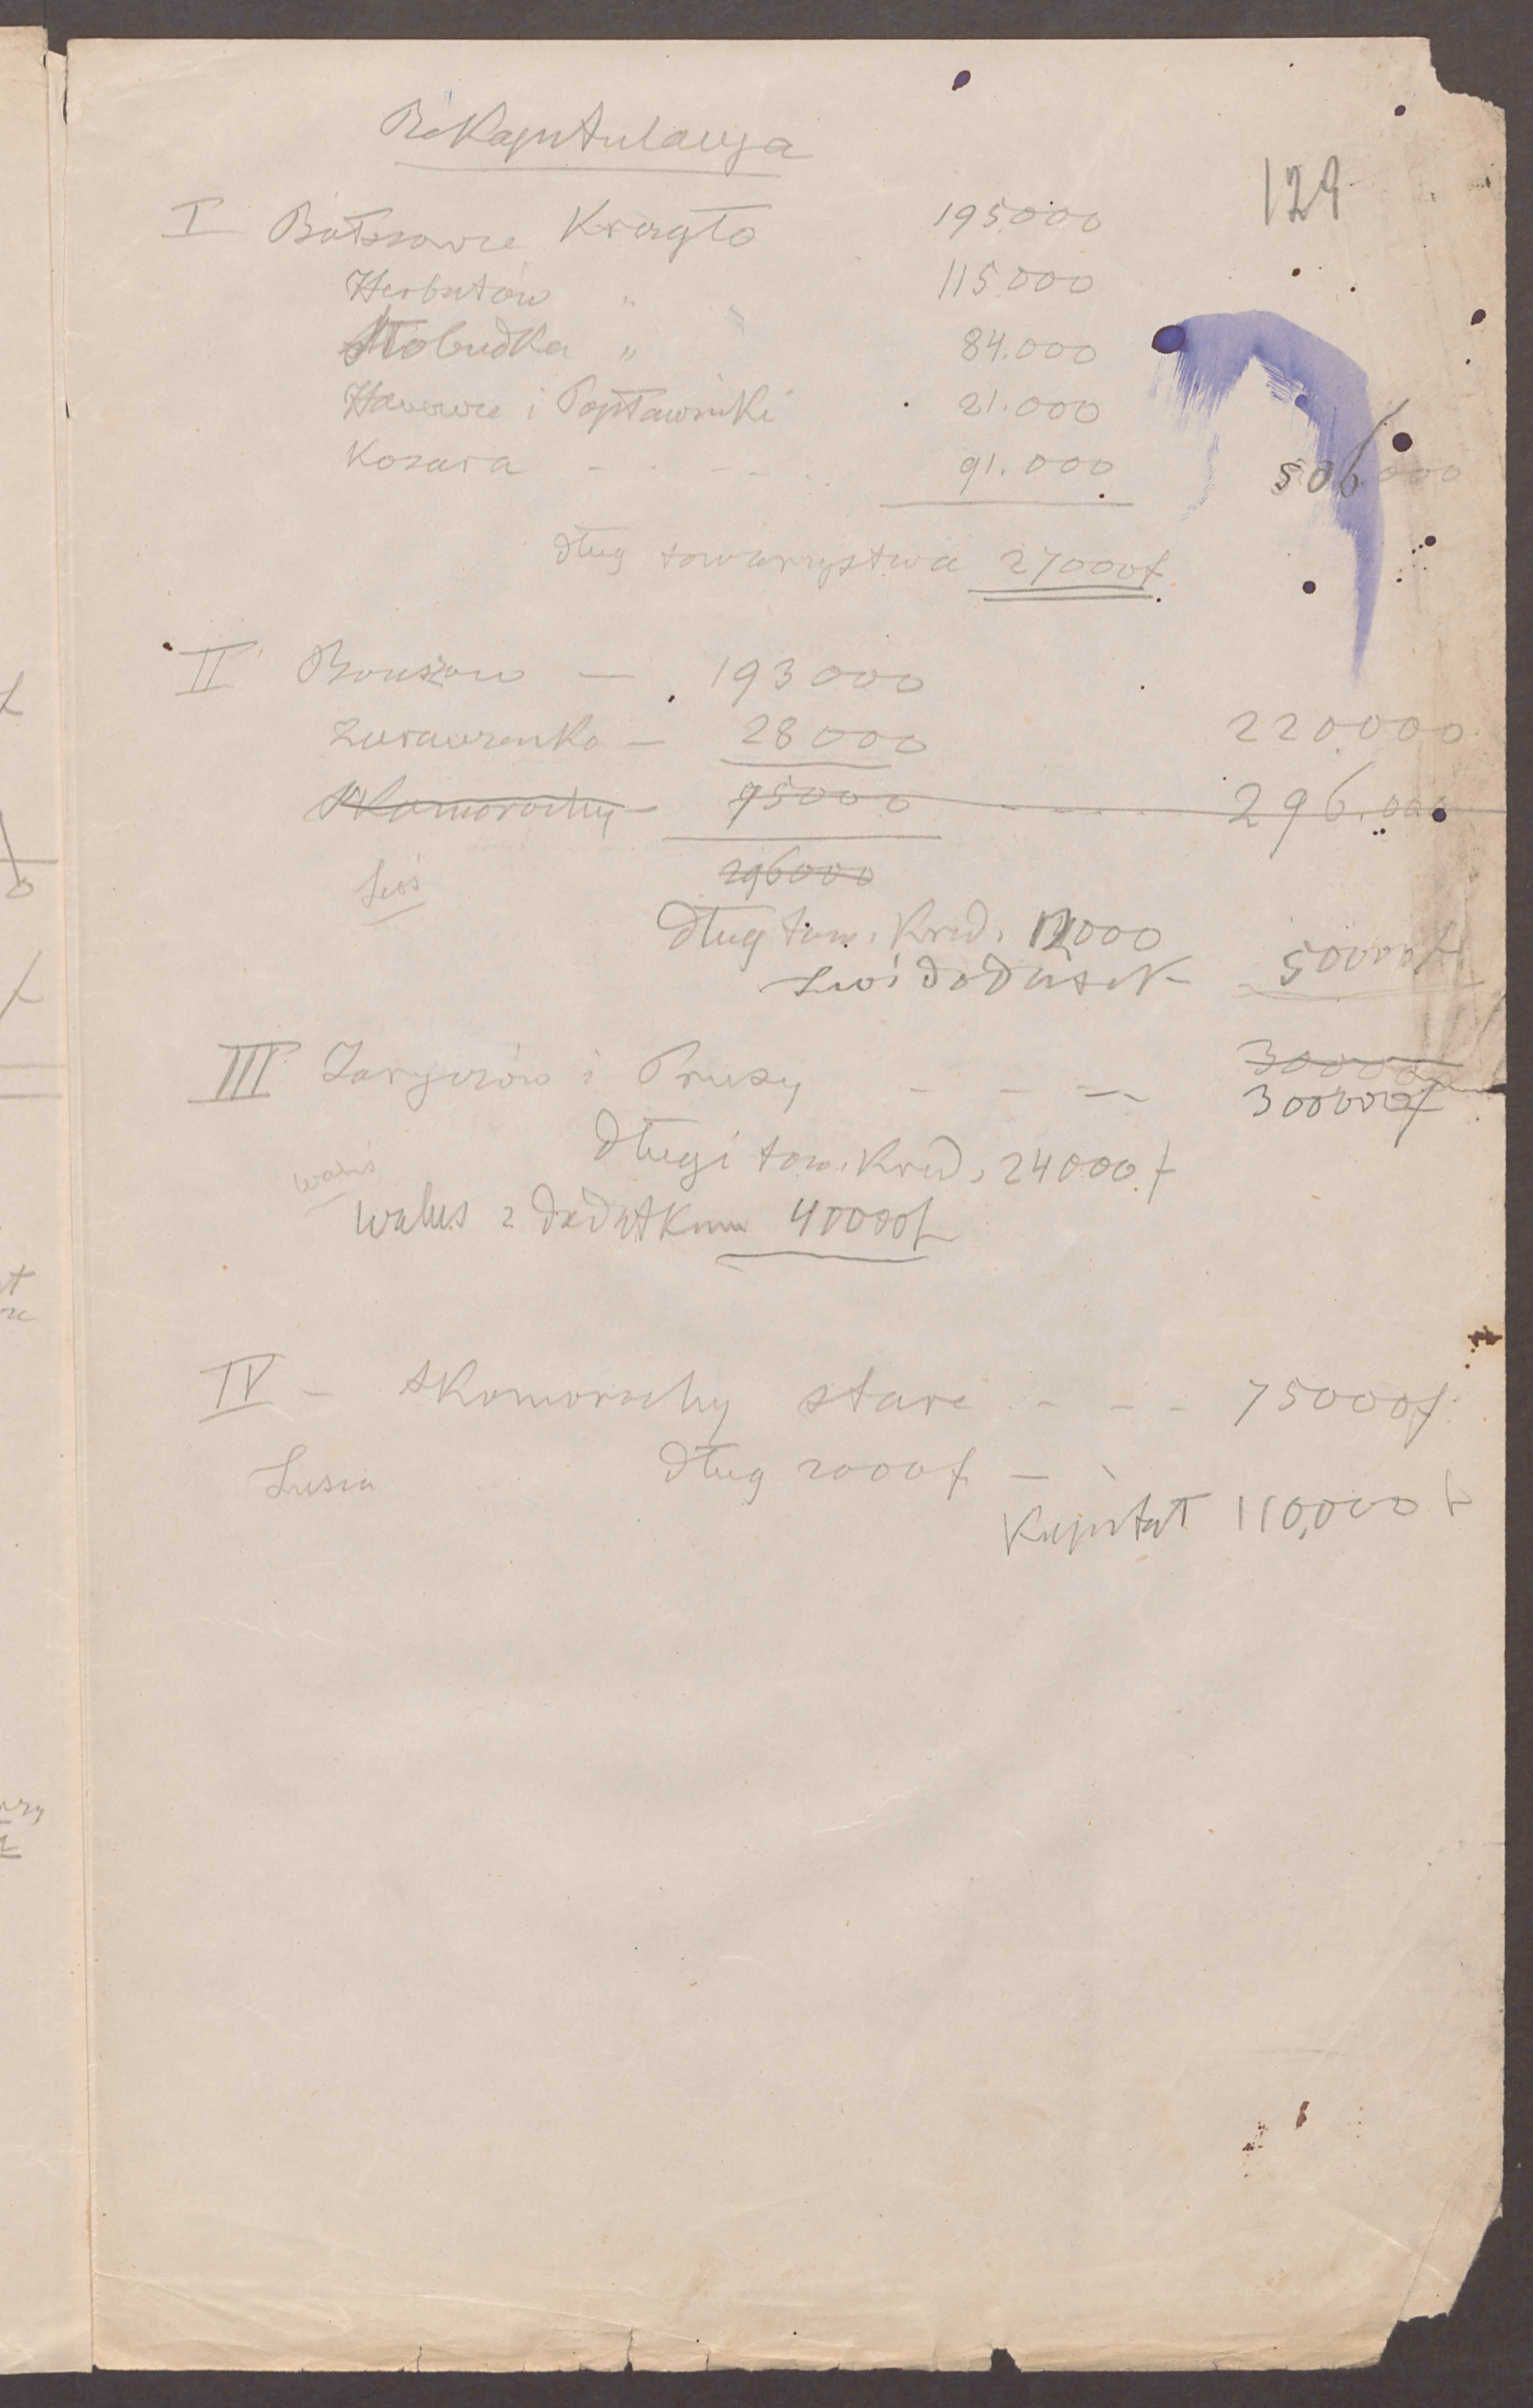 Rekapitulacya
129
I Bołszowce Krągło 195.000
Herbutów " " 115.000
Słobudka " 84.000
i Popławniki 21.000
Kozara - - - - 91.000 506.000
dług towarzystwa 27000f
II Bouszow — 193000
Zurawienko — 28000 220.000
Skomorochy — 75000 - - - 296.000
296000
Luś
Dług tow. Kred. 12000
Luś dodatek 50000f
III Zaryczów i Pruzy - - - - 30000
300000f
Długi tow. Kred. 24000 f
waluś
Waluś z dodatkum 40000f
IV - Skomorochy stare - - - 75000f
Lusia dług 2000f —
Kapitał 110,000 f